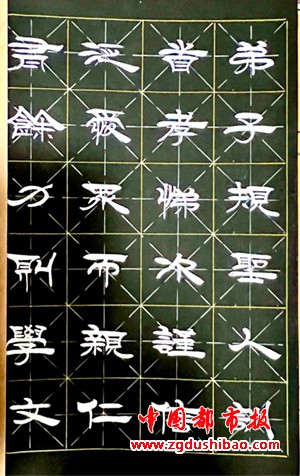 弟子規聖人訓
首孝悌次謹信
泛愛眾而親仁
有餘力則學文
中国都市报
www.zgdushibao.com